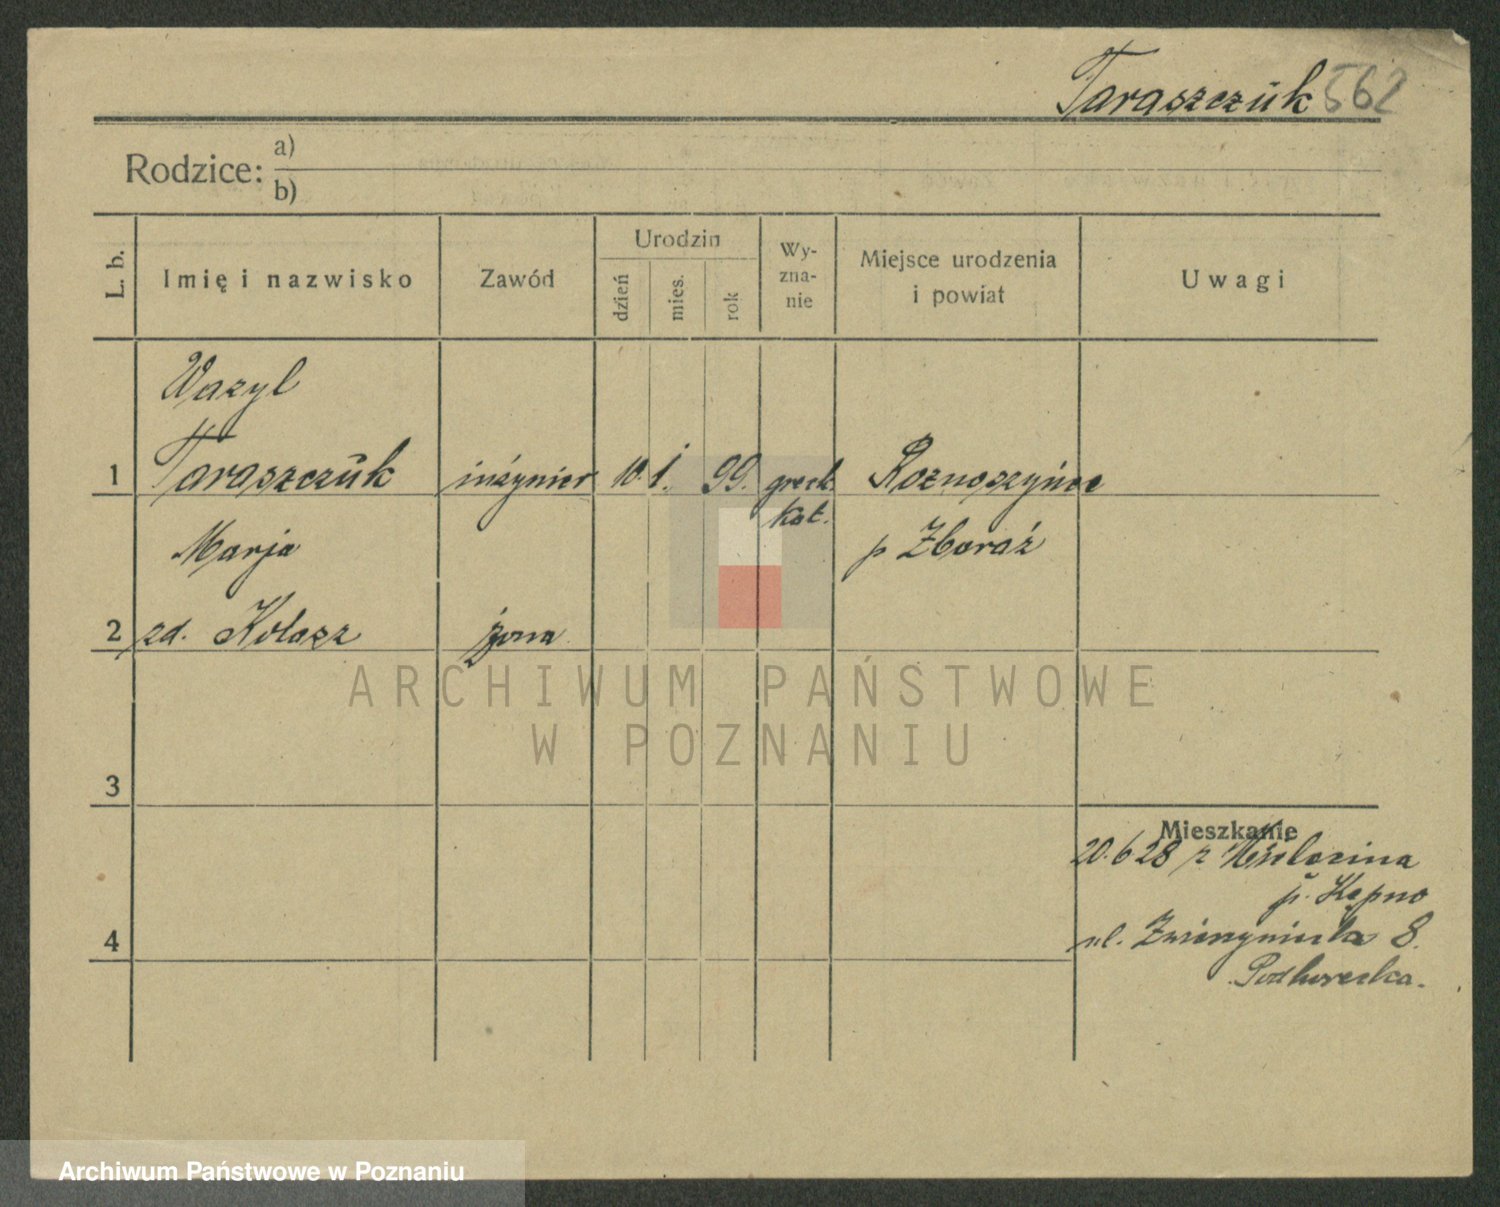 Taraszczuk 562
Rodzice: a)
b)
L. b.
Imię i nazwisko
Zawód
Urodzin
dzień
mies.
rok
Wy-
zna-
nie
Miejsce urodzenia
i powiat
Uwagi
Wazyl
1 Taraszczuk inżynier 10. 1. 99. greck.
kat.
p Zbaraż
Marja
2 zd. Kołasz żona
3
Mieszkanie
20.6 28 z
p. Kępno
ul. Zwierzyniecka 8.
Podhorecka.
4
ARCHIWUM PAŃSTWOWE
W POZNANIU
Archiwum Państwowe w Poznaniu